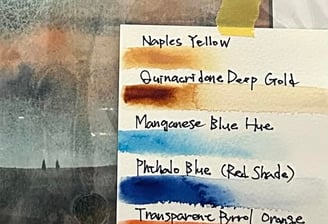 Naples Yellow
Quinacridone Deep Gold
Manganese Blue Hue
Phthalo Blue (Red Shade)
Transparent Pyrrol Orange